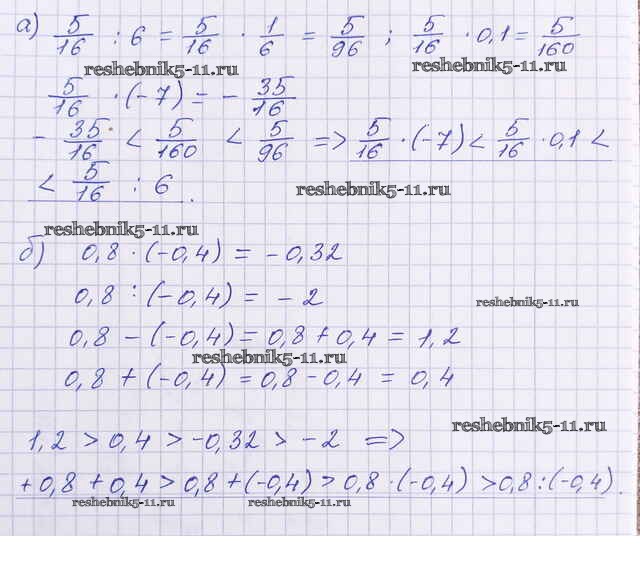 а) 5/16 : 6 = 5/16 · 1/6 = 5/96 ; 5/16 · 0,1 = 5/160
reshebnik5-11.ru reshebnik5-11.ru
5/16 · (-7) = - 35/16
- 35/16 < 5/160 < 5/96 => 5/16 · (-7) < 5/16 · 0,1 <
< 5/16 : 6 .
reshebnik5-11.ru
reshebnik5-11.ru
б) 0,8 · (-0,4) = -0,32
0,8 : (-0,4) = -2
reshebnik5-11.ru
0,8 - (-0,4) = 0,8 + 0,4 = 1,2
reshebnik5-11.ru
0,8 + (-0,4) = 0,8 - 0,4 = 0,4
reshebnik5-11.ru
1,2 > 0,4 > -0,32 > -2 =>
+ 0,8 + 0,4 > 0,8 + (-0,4) > 0,8 · (-0,4) > 0,8 : (-0,4) .
reshebnik5-11.ru reshebnik5-11.ru